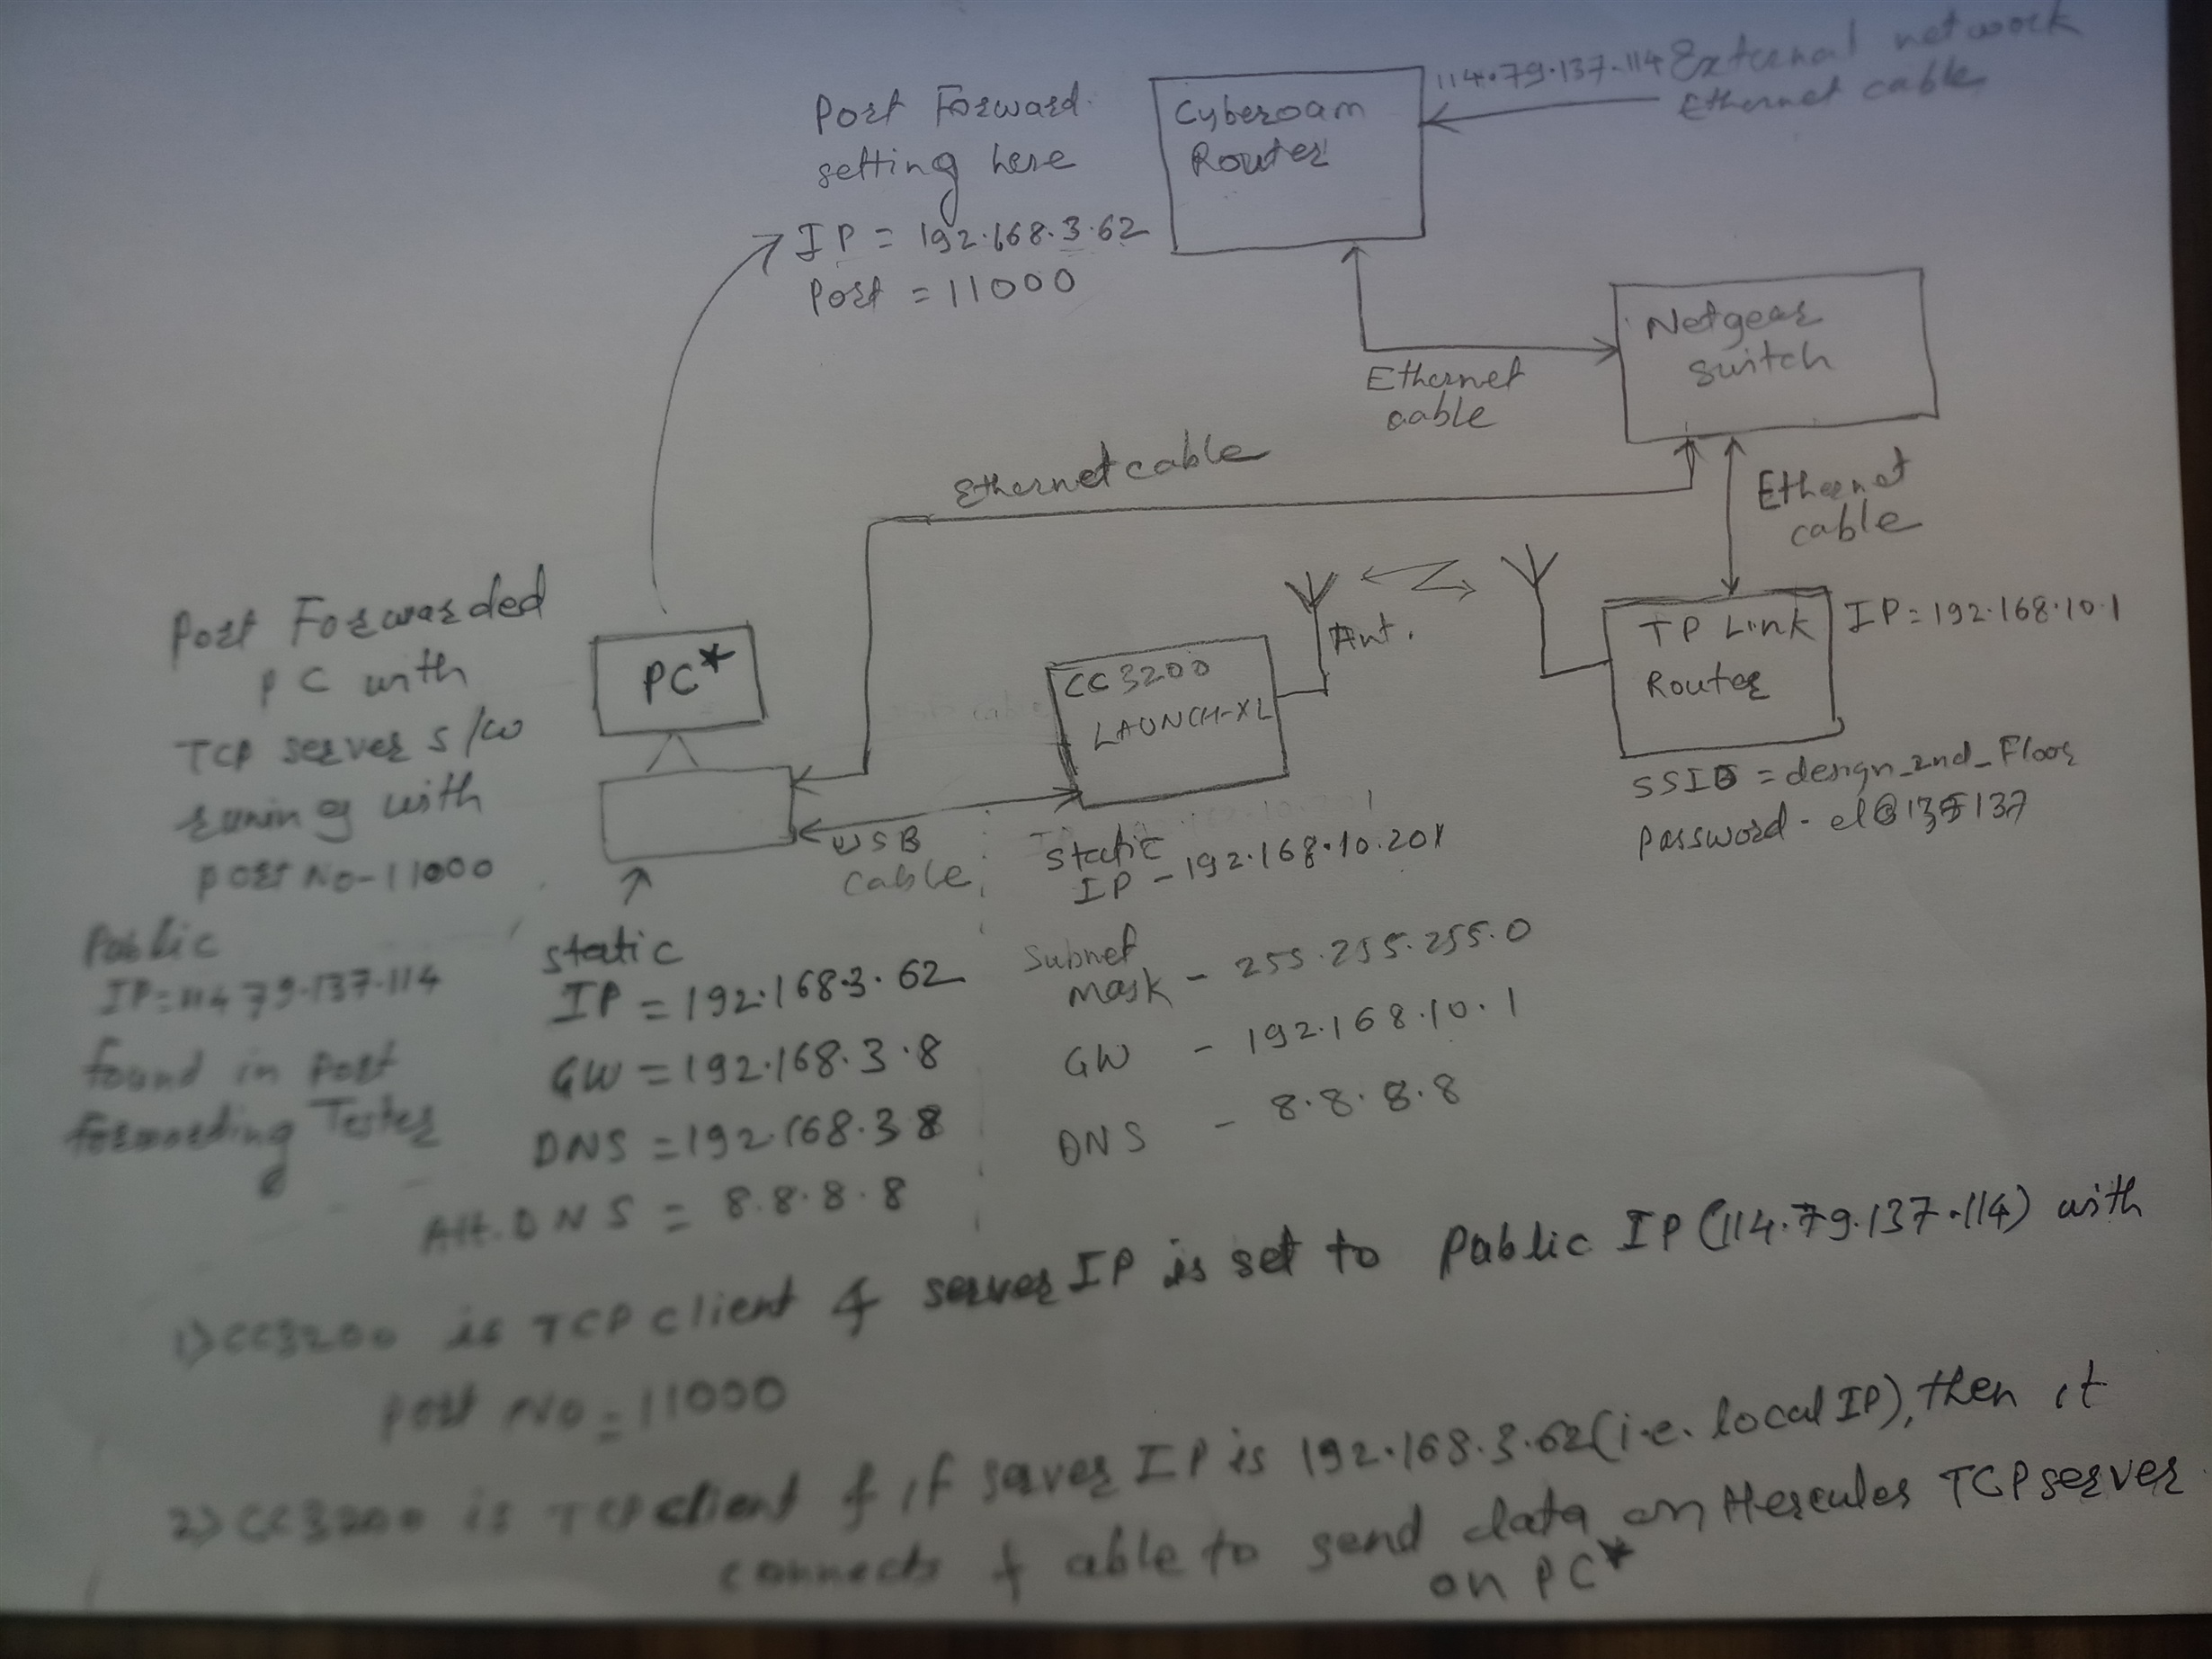 114.79.137.114 External network
Ethernet cable
Cyberoam
Router
Port Forward
setting here
IP = 192.168.3.62
Port = 11000
Netgear
switch
Ethernet
cable
Ethernet cable
Ethernet
cable
Ant.
TP Link
Router
IP = 192.168.10.1
SSID = design_2nd_Floor
Password -
CC3200
LAUNCH-XL
PC*
Port Forwarded
PC with
TCP server s/w
runing with
port No-11000
USB
cable
Static
IP - 192.168.10.201
Subnet
mask - 255.255.255.0
GW - 192.168.10.1
DNS - 8.8.8.8
Public
IP = 114.79.137.114
found in port
forwarding Tester
static
IP = 192.168.3.62
GW = 192.168.3.8
DNS = 192.168.3.8
Alt. DNS = 8.8.8.8
1) CC3200 is TCP client & server IP is set to Public IP (114.79.137.114) with
port No = 11000
2) CC3200 is TCP client & if server IP is 192.168.3.62 (i.e. local IP), then it
connects & able to send data on Hercules TCP server
on PC*